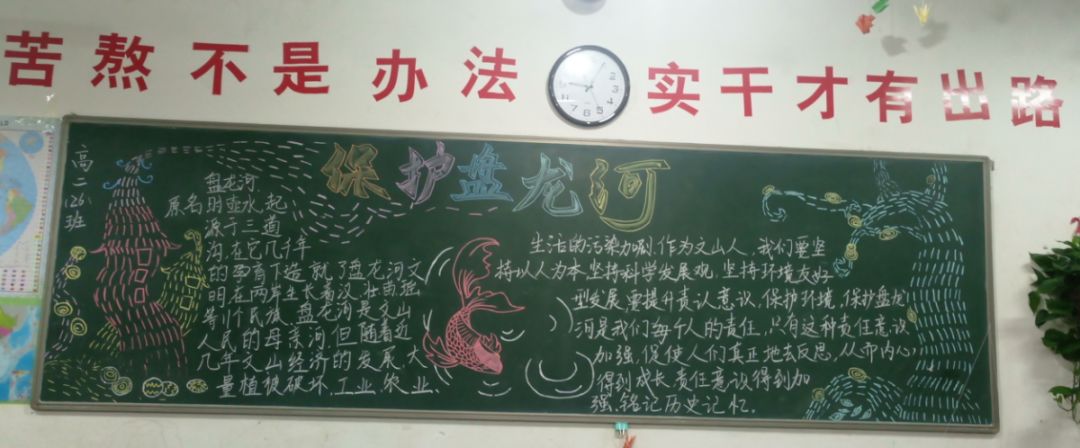 苦熬不是办法 实干才有出路
高二126班
保护盘龙河
盘龙河
原名明壶水,起
源于三道
沟,在它几千年
的孕育下造就了盘龙河文
明在两岸生长着汉、壮苗瑶
等11个民族,盘龙河是文山
人民的母亲河但随着近
几年文山经济的发展,大
量植被破坏,工业、农业、
生活的污染加剧,作为文山人,我们要坚
持以人为本坚持科学发展观,坚持环境友好
型发展,要提升责认意识、保护环境,保护盘龙
河是我们每个人的责任,只有这种责任意识
加强,促使人们真正地去反思,从而内心
得到成长,责任意识得到加
强,铭记历史记忆.